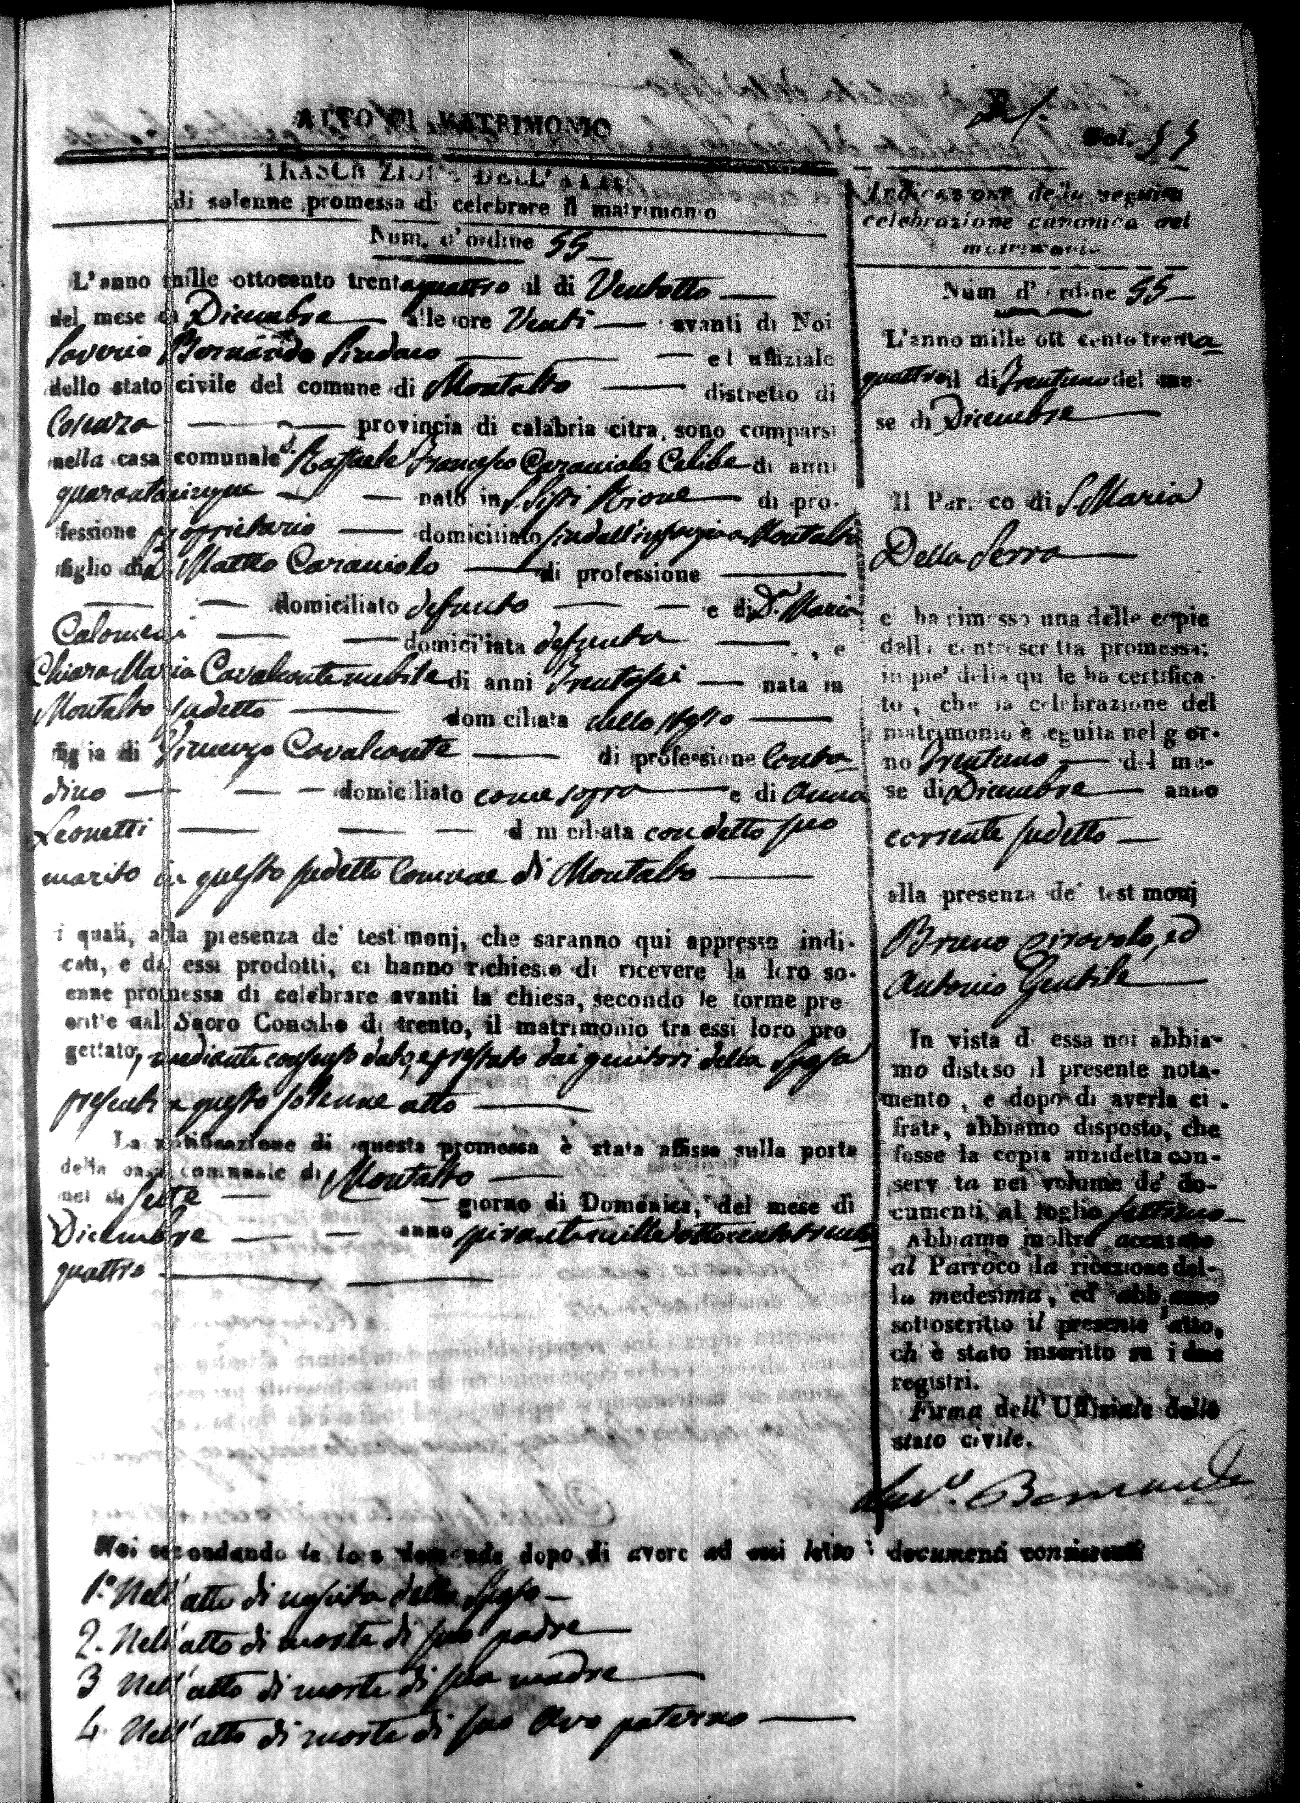 ATTO DI MATRIMONIO
Fol. 55
TRASCRIZIONE DELL'ATTO
di solenne promessa di celebrare il matrimonio
Num. d'ordine 55
L'anno mille ottocento trentaquattro il di Ventotto
del mese di Dicembre alle ore Venti avanti di Noi
Saverio Bernardo Sindaco ed uffiziale
dello stato civile del comune di Montalto distretto di
Cosenza provincia di calabria citra, sono comparsi
nella casa comunale D. Raffaele Francesco Caracciolo Celibe di anni
quarantacinque nato in S. Sisti di pro-
fessione proprietario domiciliato sin dall'infanzia a Montalto
figlio di D. Matteo Caracciolo di professione
domiciliato defunto e di D.a Maria
Calomeni domiciliata defunta , e
Chiara Maria Cavalcante nubile di anni Trentasei nata in
Montalto sudetto domiciliata nello stesso
figlia di Vincenzo Cavalcante di professione Conta-
dino domiciliato come sopra e di Anna
Leonetti domiciliata con detto suo
marito in questo sudetto Comune di Montalto
i quali, alla presenza de' testimonj, che saranno qui appresso indi-
cati, e da essi prodotti, ci hanno richiesto di ricevere la loro so-
enne promessa di celebrare avanti la chiesa, secondo le forme pre
scritte dal Sacro Concilio di trento, il matrimonio tra essi loro pro
gettato, mediante consenso dato, e prestato dai genitori della Sposa
presenti a questo solenne atto
La notificazione di questa promessa è stata affissa sulla porta
della casa comunale di Montalto
nel di sette giorno di Domenica, del mese di
Dicembre anno spirante mille ottocento trenta
quattro
Noi secondando la loro domanda dopo di avere ad essi letto i documenti consistenti
1.° Nell'atto di nascita dello Sposo
2. Nell'atto di morte di suo padre
3 Nell'atto di morte di sua madre
4. Nell'atto di morte di suo Avo paterno
Indicazione della seguita
celebrazione canonica del
matrimonio
Num d'ordine 55
L'anno mille ott cento trenta
quattro il di Trentuno del me-
se di Dicembre
Il Parroco di S. Maria
Della Serra
ci ha rimesso una delle copie
della controscritta promessa;
in pie' della quale ha certifica-
to, che la celebrazione del
matrimonio è seguita nel gior-
no Trentuno del me-
se di Dicembre anno
corrente sudetto
alla presenza de' testimonj
Bruno Pirovolo, ed
Antonio Gentile
In vista di essa noi abbia-
mo disteso il presente nota-
mento, e dopo di averla ci
frata, abbiamo disposto, che
fosse la copia anzidetta con-
servata nel volume de' do-
cumenti al foglio
Abbiamo inoltre accusato
al Parroco la ricezione del-
la medesima, ed abbiamo
sottoscritto il presente atto,
ch'è stato inscritto su i due
registri.
Firma dell'Uffiziale dello
stato civile.
Sav.° Bernardo